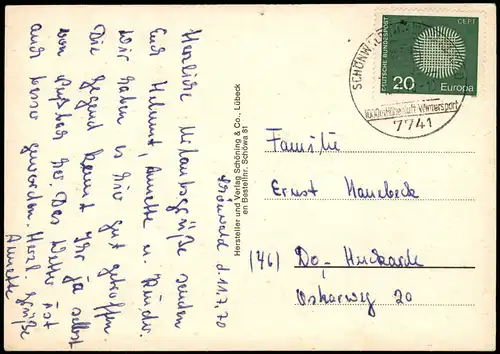 Schönwald d. 11.7.70
Herzliche Urlaubsgrüße senden
Euch Helmut, Annette u. Kinder.
Wir haben es hier gut getroffen.
Die Gegend kennt Ihr ja selbst
von her. Das Wetter ist
auch besser geworden. Herzl. Grüße
Annette
Hersteller und Verlag Schöning & Co., Lübeck
en Bestellnr. Schöwa 81
DEUTSCHE BUNDESPOST
CEPT
20
Europa
SCHÖNW
Wintersport
7741
Familie
Ernst
(46) Do-Huckarde
Oskarweg 20